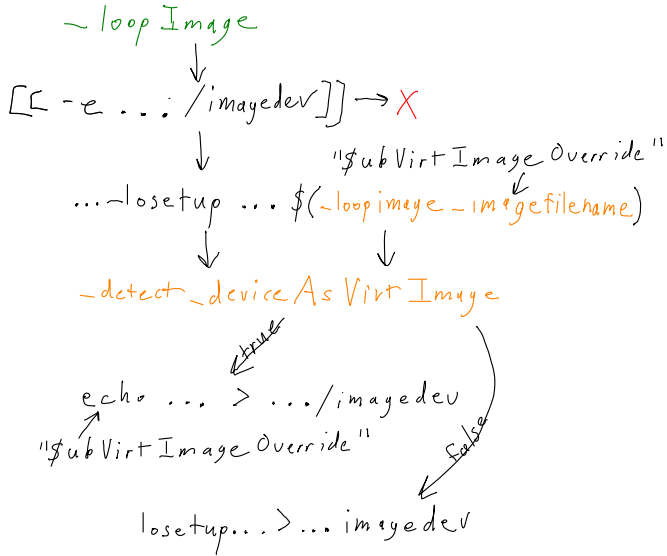 _loopImage
[[ -e ... /imagedev]] → X
"$ubVirtImageOverride"
... _losetup ... $(_loopimage_imagefilename)
_detect_deviceAsVirtImage
true
echo ... > .../imagedev
"$ubVirtImageOverride"
false
losetup...>...imagedev